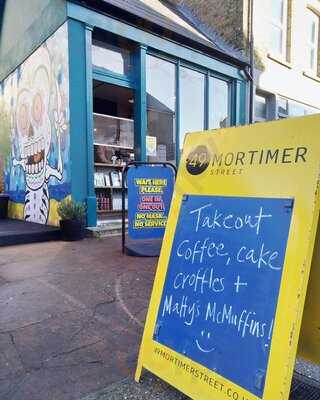 WAIT HERE
PLEASE.
ONE IN,
ONE OUT
NO MASK,
NO SERVICE
49 MORTIMER
STREET
Takeout
Coffee, cake
Croffles +
Matty's McMuffins!
@49MORTIMERSTREET.CO.UK